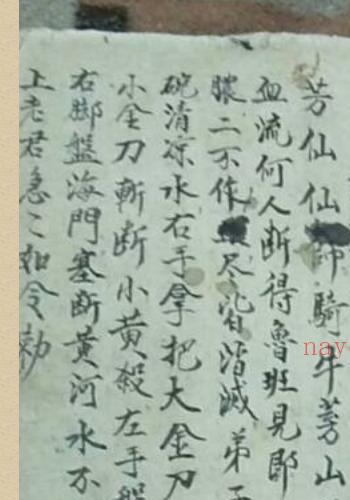 芳仙仙師騎牛募山
血流何人断得魯班見即
膿二不作尽消皆滅弟子
碗清凉水右手拿把大金刀
小金刀斬断小黄殺左手
右脚盤海門塞断黄河水不
上老君急二如令勅
nay